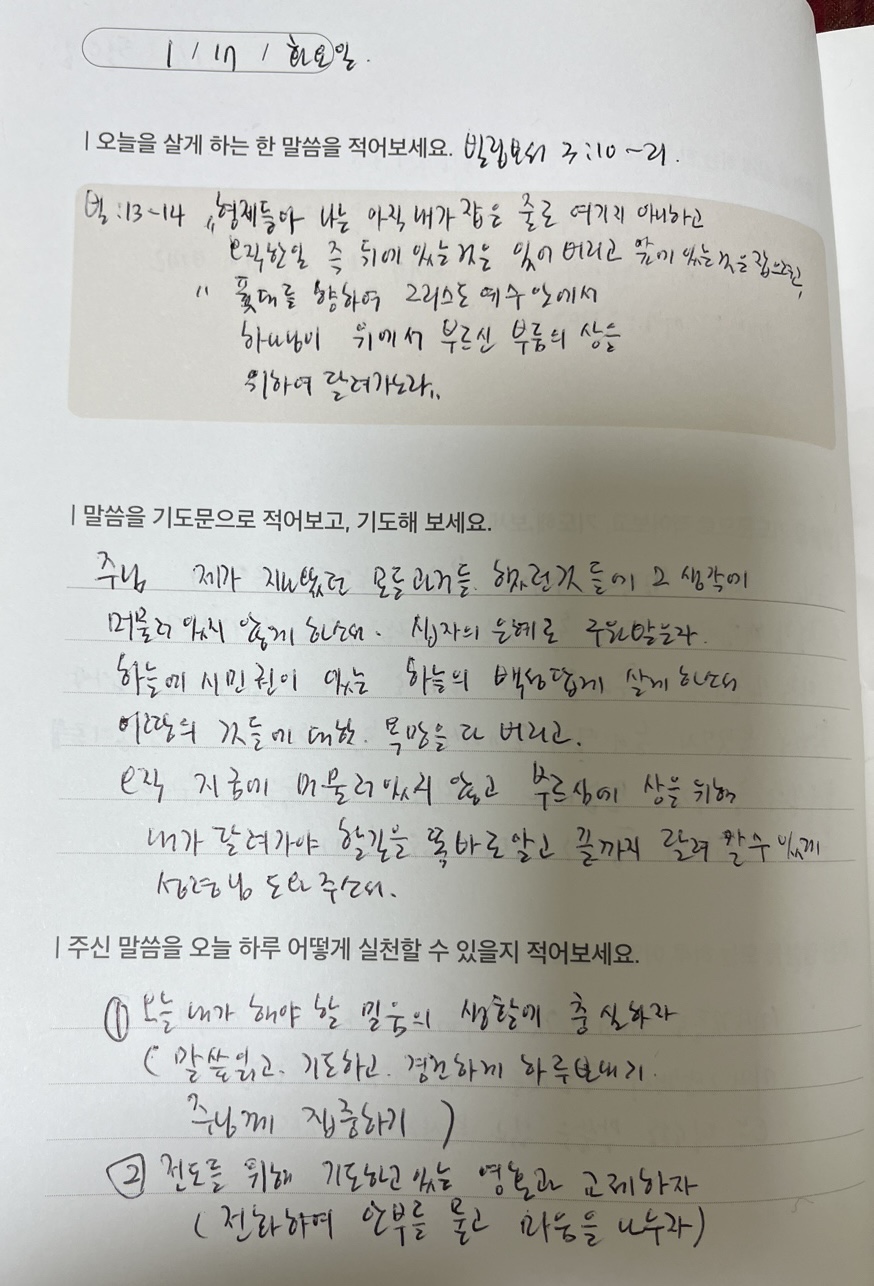 1 / 17 / 화요일.
| 오늘을 살게 하는 한 말씀을 적어보세요. 빌립보서 3:10~21.
빌:13~14 "형제들아 나는 아직 내가 잡은 줄로 여기지 아니하고
오직한일 즉 뒤에 있는것은 잊어 버리고 앞에 있는것을 잡으려고
" 푯대를 향하여 그리스도 예수 안에서
하나님이 위에서 부르신 부름의 상을
위하여 달려가노라"
| 말씀을 기도문으로 적어보고, 기도해 보세요.
주님 제가 지나왔던 모들과거들. 했던것 들에 그 생각에
머물러 있지 않게 하소서. 십자의 은혜로 구원받은자.
하늘에 시민권이 있는 하늘의 백성답게 살게 하소서
이땅의 것들에 대한. 욕망을 다 버리고.
오직 지금에 머물러있지 않고 부르심에 상을 위해
내가 달려가야 할길을 똑바로알고 끝까지 달려 갈수 있게
성령님 도와주소서.
| 주신 말씀을 오늘 하루 어떻게 실천할 수 있을지 적어보세요.
① 오늘 내가 해야 할 믿음의 생활에 충실하자
( 말씀읽고. 기도하고. 경건하게 하루보내기.
주님께 집중하기 )
② 전도를 위해 기도하고 있는 영혼과 교제하자
( 전화하여 안부를 묻고 마음을 나누자)